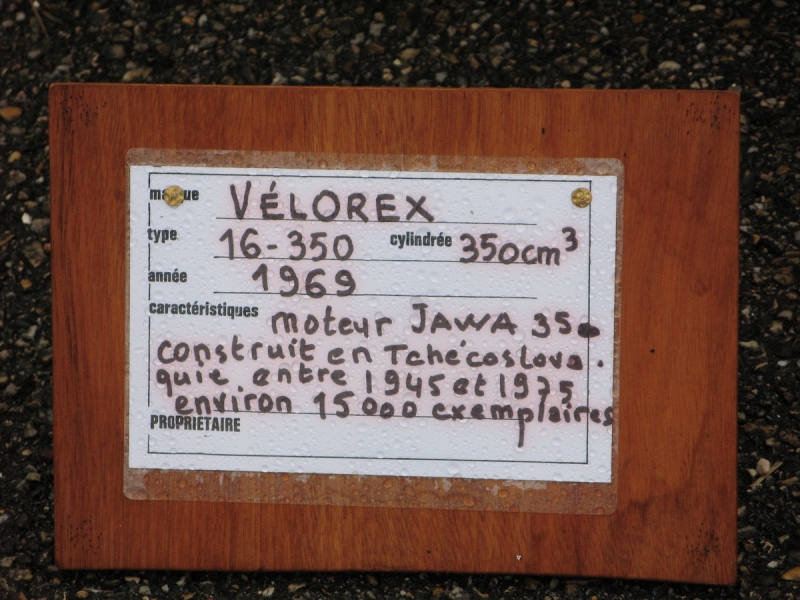 marque VÉLOREX
type 16-350 cylindrée 350cm³
année 1969
caractéristiques moteur JAWA 350
construit en Tchécoslova.
quie entre 1945 et 1975
environ 15000 exemplaires
PROPRIETAIRE